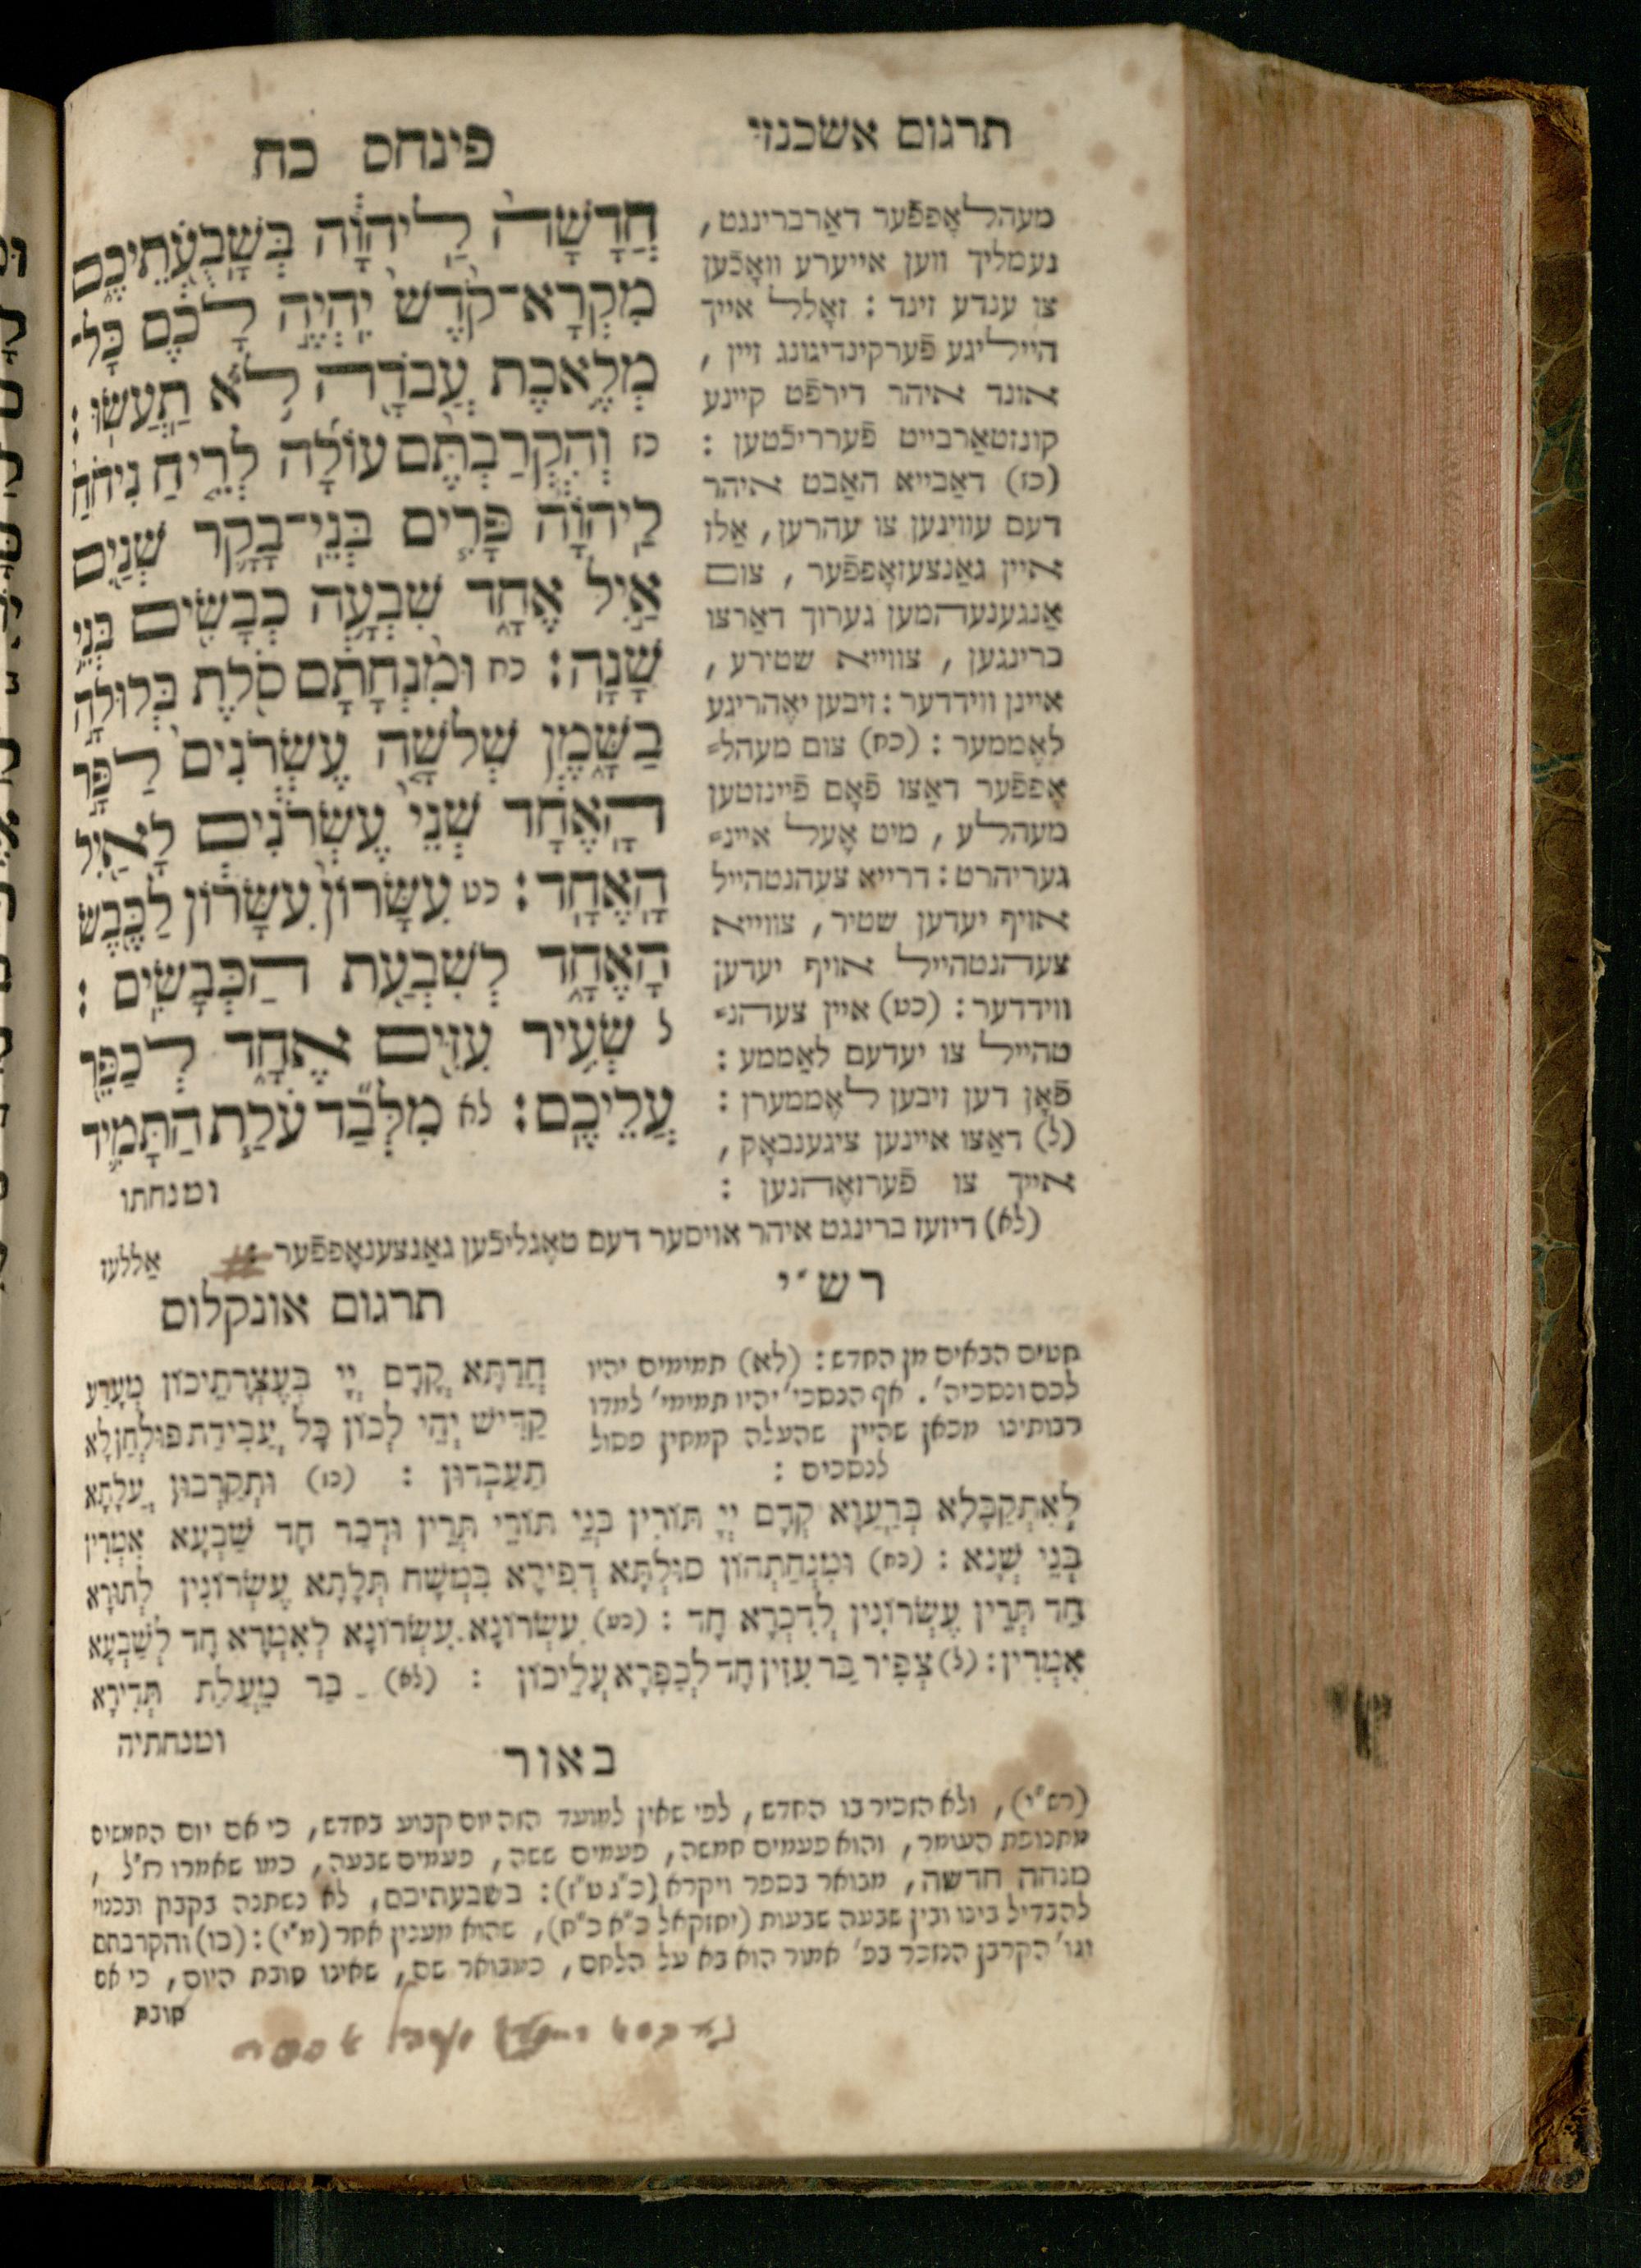 תרגום אשכנזי
פינחס כח
חֲדָשָׁה לַיהוָה בְּשָׁבֻעֹתֵיכֶם
מִקְרָא־קֹדֶשׁ יִהְיֶה לָכֶם כָּל־
מְלֶאכֶת עֲבֹדָה לֹא תַעֲשׂוּ :
כז וְהִקְרַבְתֶּם עוֹלָה לְרֵיחַ נִיחֹחַ
לַיהוָה פָּרִים בְּנֵי־בָקָר שְׁנַיִם
אַיִל אֶחָד שִׁבְעָה כְבָשִׂים בְּנֵי
שָׁנָה : כח וּמִנְחָתָם סֹלֶת בְּלוּלָה
בַשָּׁמֶן שְׁלֹשָׁה עֶשְׂרֹנִים לַפָּר
הָאֶחָד שְׁנֵי עֶשְׂרֹנִים לָאַיִל
הָאֶחָד : כט עִשָּׂרוֹן עִשָּׂרוֹן לַכֶּבֶשׂ
הָאֶחָד לְשִׁבְעַת הַכְּבָשִׂים :
ל שְׂעִיר עִזִּים אֶחָד לְכַפֵּר
עֲלֵיכֶם : לא מִלְּבַד עֹלַת הַתָּמִיד
ומנחתו
מעהלאָפפֿער דאַרברינגט ,
נעמליך ווען אייערע וואָכֿען
צו ענדע זינד : זאָלל אייך
הייליגע פֿערקינדיגונג זיין ,
אונד איהר דירפֿט קיינע
קונזטאַרבייט פֿערריכֿטען :
(כז) דאַבייא האַבט איהר
דעם עוויגען צו עהרען , אַלז
איין גאַנצעזאָפפֿער , צום
אַנגענעהמען גערוך דאַרצו
ברינגען , צווייא שטירע ,
איינן ווידדער : זיבען יאָהריגע
לאָממער : (כח) צום מעהל=
אָפפֿער דאַצו פֿאָם פֿיינזטען
מעהלע , מיט אָעל איינ=
געריהרט : דרייא צעהנטהייל
אויף יעדען שטיר , צווייא
צעהנטהייל אויף יעדען
ווידדער : (כט) איין צעהנ=
טהייל צו יעדעם לאַממע :
פֿאָן דען זיבען לאָממערן :
(ל) דאַצו איינען ציגענבאָק ,
אייך צו פֿערזאָהנען :
(לא) דיזעז ברינגט איהר אויסער דעם טאָגליכֿען גאַנצענאָפפֿער :
אַללעז
רש״י
חטים הבאים מן החדש : (לא) תמימים יהיו
לכם ונסכיה׳ . אף הנסכי׳ יהיו תמימי׳ למדו
רבותינו מכאן שהיין שהעלה קמחין פסול
לנסכים :
תרגום אונקלוס
חֲדַתָּא קֳדָם יְיָ בְּעַצְרָתֵיכוֹן מְעָרַע
קַדִּישׁ יְהֵי לְכוֹן כָּל עֲבִידַת פּוּלְחַן לָא
תַעַבְדוּן : (כז) וּתְקָרְבוּן עֲלָתָא
לְאִתְקַבָּלָא בְּרַעֲוָא קֳדָם יְיָ תּוֹרִין בְּנֵי תוֹרֵי תְּרֵין וּדְכַר חָד שַׁבְעָא אִמְּרִין
בְּנֵי שְׁנָא : (כח) וּמִנְחַתְהוֹן סוּלְתָּא דְפִילָא בִמְשַׁח תְּלָתָא עֶשְׂרוֹנִין לְתוֹרָא
חַד תְּרֵין עֶשְׂרוֹנִין לְדִכְרָא חָד : (כט) עִשְׂרוֹנָא עִשְׂרוֹנָא לְאִמְּרָא חָד לְשַׁבְעָא
אִמְּרִין : (ל) צְפִיר בַּר עִזִּין חָד לְכַפָּרָא עֲלֵיכוֹן : (לא) בַּר מֵעֲלַת תְּדִירָא
ומנחתיה
באור
(רש״י) , ולא הזכיר בו החדש , לפי שאין למועד הזה יום קבוע בחדש , כי אם יום החמשים
מתנופת העומר , והוא פעמים חמשה , פעמים ששה , פעמים שבעה , כמו שאמרו רז״ל ,
מנחה חדשה , מבואר בספר ויקרא (כ״ג ט״ז) : בשבעתיכם , לא נשתנה בקבוץ ובכנוי
להבדיל בינו ובין שבעה שבעות (יחזקאל כ״א כ״ח) , שהוא מענין אחר (מ״י) : (כז) והקרבתם
וגו׳ הקרבן הנזכר בפ׳ אמור הוא בא על הלחם , כמבואר שם , שאינו חובת היום , כי אם
חובת